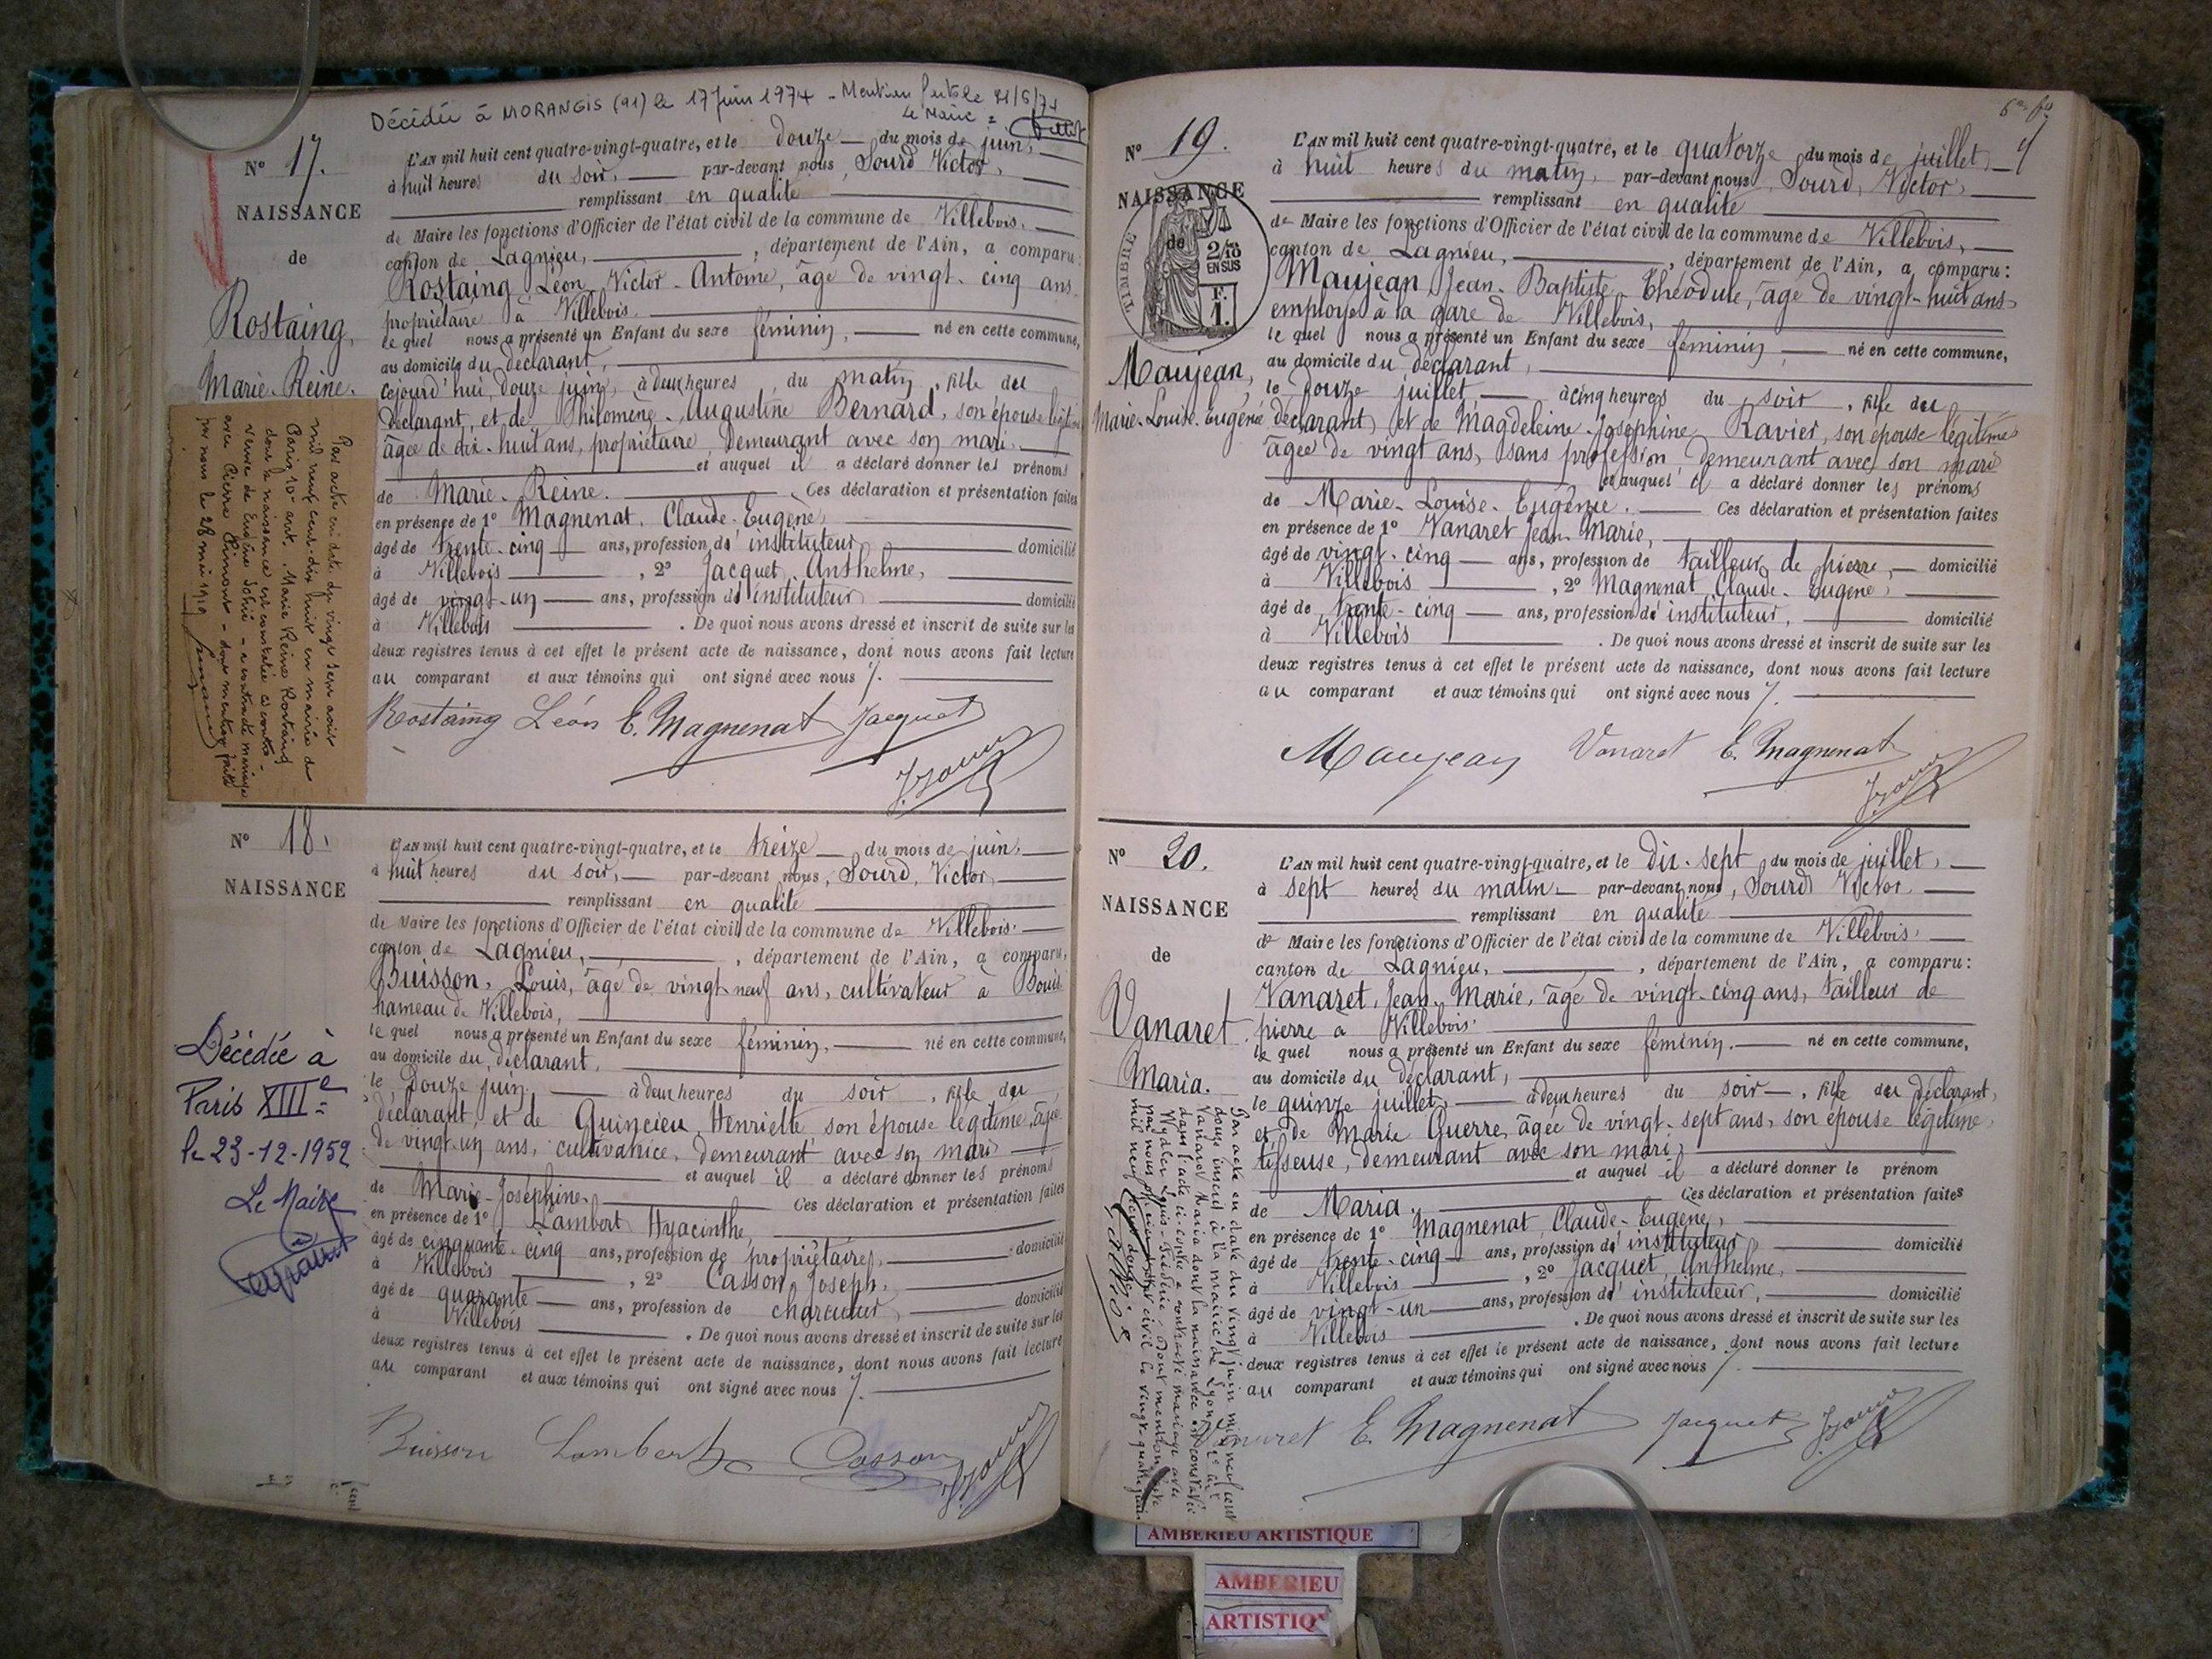 Décédée à MORANGIS (91) le 17 Juin 1974 - Mention faite le 21/6/74
Le Maire :
N° 17.
NAISSANCE
de
Rostaing,
Marie-Reine.
L'AN mil huit cent quatre-vingt-quatre, et le douze du mois de juin,
à huit heures du soir, par-devant nous, Sourd Victor,
remplissant en qualité
de Maire les fonctions d'Officier de l'état civil de la commune de Villebois.
canton de Lagnieu, , département de l'Ain, a comparu:
Rostaing Léon-Victor-Antoine, âgé de vingt-cinq ans
propriétaire à Villebois.
lequel nous a présenté un Enfant du sexe féminin, né en cette commune,
au domicile du déclarant,
cejourd'hui, douze juin, à deux heures du matin, fille du
déclarant, et de Philomène-Augustine Bernard, son épouse légitime
âgée de dix-huit ans, propriétaire, demeurant avec son mari.
et auquel il a déclaré donner les prénoms
de Marie-Reine. Ces déclaration et présentation faites
en présence de 1° Magnenat, Claude-Eugène,
âgé de trente-cinq ans, profession d'instituteur domicilié
à Villebois , 2° Jacquet, Anthelme,
âgé de vingt-un ans, profession d'instituteur domicilié
à Villebois . De quoi nous avons dressé et inscrit de suite sur les
deux registres tenus à cet effet le présent acte de naissance, dont nous avons fait lecture
au comparant et aux témoins qui ont signé avec nous
Rostaing Léon E. Magnenat Jacquet
Par acte en date du vingt sept avril
mil neuf cent-dix huit en mairie de
Paris 10e arrt. Marie Reine Rostaing
dont la naissance est constatée ci contre -
veuve de Eugène - a contracté mariage
avec Pierre Pimont - dont mention faite
par nous le 28 mai 1919
N° 18.
NAISSANCE
L'AN mil huit cent quatre-vingt-quatre, et le treize du mois de juin,
à huit heures du soir, par-devant nous, Sourd, Victor,
remplissant en qualité
de Maire les fonctions d'Officier de l'état civil de la commune de Villebois.
canton de Lagnieu, , département de l'Ain, a comparu,
Buisson, Louis, âgé de vingt neuf ans, cultivateur à Bouis
hameau de Villebois,
lequel nous a présenté un Enfant du sexe féminin, né en cette commune,
au domicile du déclarant,
le douze juin à deux heures du soir, fille du
déclarant, et de Quincieu, Henriette son épouse légitime, âgée
de vingt-un ans, cultivatrice, demeurant avec son mari
et auquel il a déclaré donner les prénoms
de Marie-Joséphine. Ces déclaration et présentation faites
en présence de 1° Lambert Hyacinthe,
âgé de cinquante-cinq ans, profession de propriétaire, domicilié
à Villebois , 2° Casson, Joseph,
âgé de quarante ans, profession de charcutier, domicilié
à Villebois . De quoi nous avons dressé et inscrit de suite sur les
deux registres tenus à cet effet le présent acte de naissance, dont nous avons fait lecture
au comparant et aux témoins qui ont signé avec nous
Buisson Lambert Casson
Décédée à
Paris XIIIe
le 23-12-1952
Le Maire
N° 19.
NAISSANCE
de
TIMBRE
2/10
EN SUS
F.
1.
Maujean,
Marie-Louise-Eugénie
L'AN mil huit cent quatre-vingt-quatre, et le quatorze du mois de juillet,
à huit heures du matin, par-devant nous, Sourd, Victor,
remplissant en qualité
de Maire les fonctions d'Officier de l'état civil de la commune de Villebois,
canton de Lagnieu, , département de l'Ain, a comparu:
Maujean, Jean-Baptiste-Théodule, âgé de vingt-huit ans
employé à la gare de Villebois,
lequel nous a présenté un Enfant du sexe féminin, né en cette commune,
au domicile du déclarant,
le douze juillet, à cinq heures du soir, fille du
déclarant, et de Magdeleine-Joséphine Ravier, son épouse légitime
âgée de vingt ans, sans profession, demeurant avec son mari
et auquel il a déclaré donner les prénoms
de Marie-Louise-Eugénie. Ces déclaration et présentation faites
en présence de 1° Vanaret Jean-Marie,
âgé de vingt-cinq ans, profession de tailleur de pierre, domicilié
à Villebois , 2° Magnenat, Claude-Eugène,
âgé de trente-cinq ans, profession d'instituteur, domicilié
à Villebois . De quoi nous avons dressé et inscrit de suite sur les
deux registres tenus à cet effet le présent acte de naissance, dont nous avons fait lecture
au comparant et aux témoins qui ont signé avec nous
Maujean Vanaret E. Magnenat
N° 20.
NAISSANCE
de
Vanaret
Maria.
L'AN mil huit cent quatre-vingt-quatre, et le dix-sept du mois de juillet,
à sept heures du matin par-devant nous, Sourd Victor
remplissant en qualité
de Maire les fonctions d'Officier de l'état civil de la commune de Villebois,
canton de Lagnieu, , département de l'Ain, a comparu:
Vanaret, Jean-Marie, âgé de vingt-cinq ans, tailleur de
pierre à Villebois.
lequel nous a présenté un Enfant du sexe féminin. né en cette commune,
au domicile du déclarant,
le quinze juillet, à deux heures du soir, fille du déclarant,
et de Marie Guerre, âgée de vingt-sept ans, son épouse légitime,
tisseuse, demeurant avec son mari,
et auquel il a déclaré donner le prénom
de Maria. Ces déclaration et présentation faites
en présence de 1° Magnenat, Claude-Eugène,
âgé de trente-cinq ans, profession d'instituteur, domicilié
à Villebois , 2° Jacquet, Anthelme,
âgé de vingt-un ans, profession d'instituteur, domicilié
à Villebois . De quoi nous avons dressé et inscrit de suite sur les
deux registres tenus à cet effet le présent acte de naissance, dont nous avons fait lecture
au comparant et aux témoins qui ont signé avec nous
Vanaret E. Magnenat Jacquet
Par acte en date du vingt juin mil neuf cent
douze inscrit à la mairie de Lyon
Vanaret Maria dont la naissance est constatée
dans l'acte ci-contre a contracté mariage avec
Louis-Frédéric, dont mention faite
par nous officier de l'état civil le vingt-quatre juin
mil neuf cent douze.
AMBERIEU ARTISTIQUE
AMBERIEU
ARTISTIQ